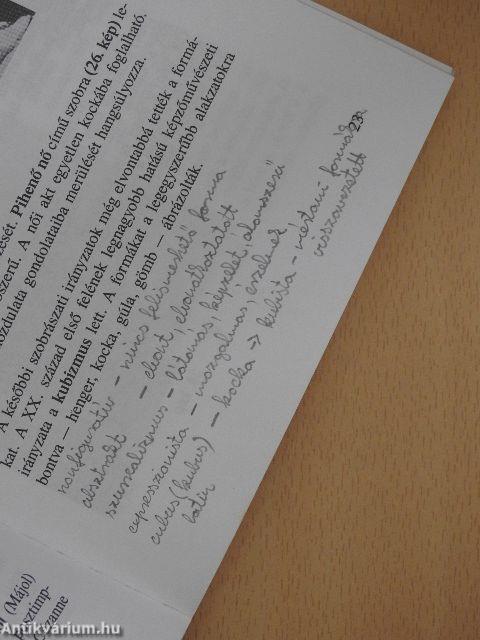 zését. Pihenő nő című szobra (26. kép) le-
oszerű. A női akt egyetlen kockába foglalható.
mozdulata gondolataiba merülését hangsúlyozza.
A későbbi szobrászati irányzatok még elvontabbá tették a formá-
kat. A XX. század első felének legnagyobb hatású képzőművészeti
irányzata a kubizmus lett. A formákat a legegyszerűbb alakzatokra
bontva — henger, kocka, gúla, gömb — ábrázolták.
23
nonfiguratív – nincs felismerhető forma
absztrakt – elvont, elvonatkoztatott
szürrealizmus – látomás, képzelet, álomszerű
expresszionista – mozgalmas, érzelmek
cubus (kubus) – kocka -> kubista – mértani formákra
latin visszavezetett
(Májol)
Cézanne
Antikvárium.hu